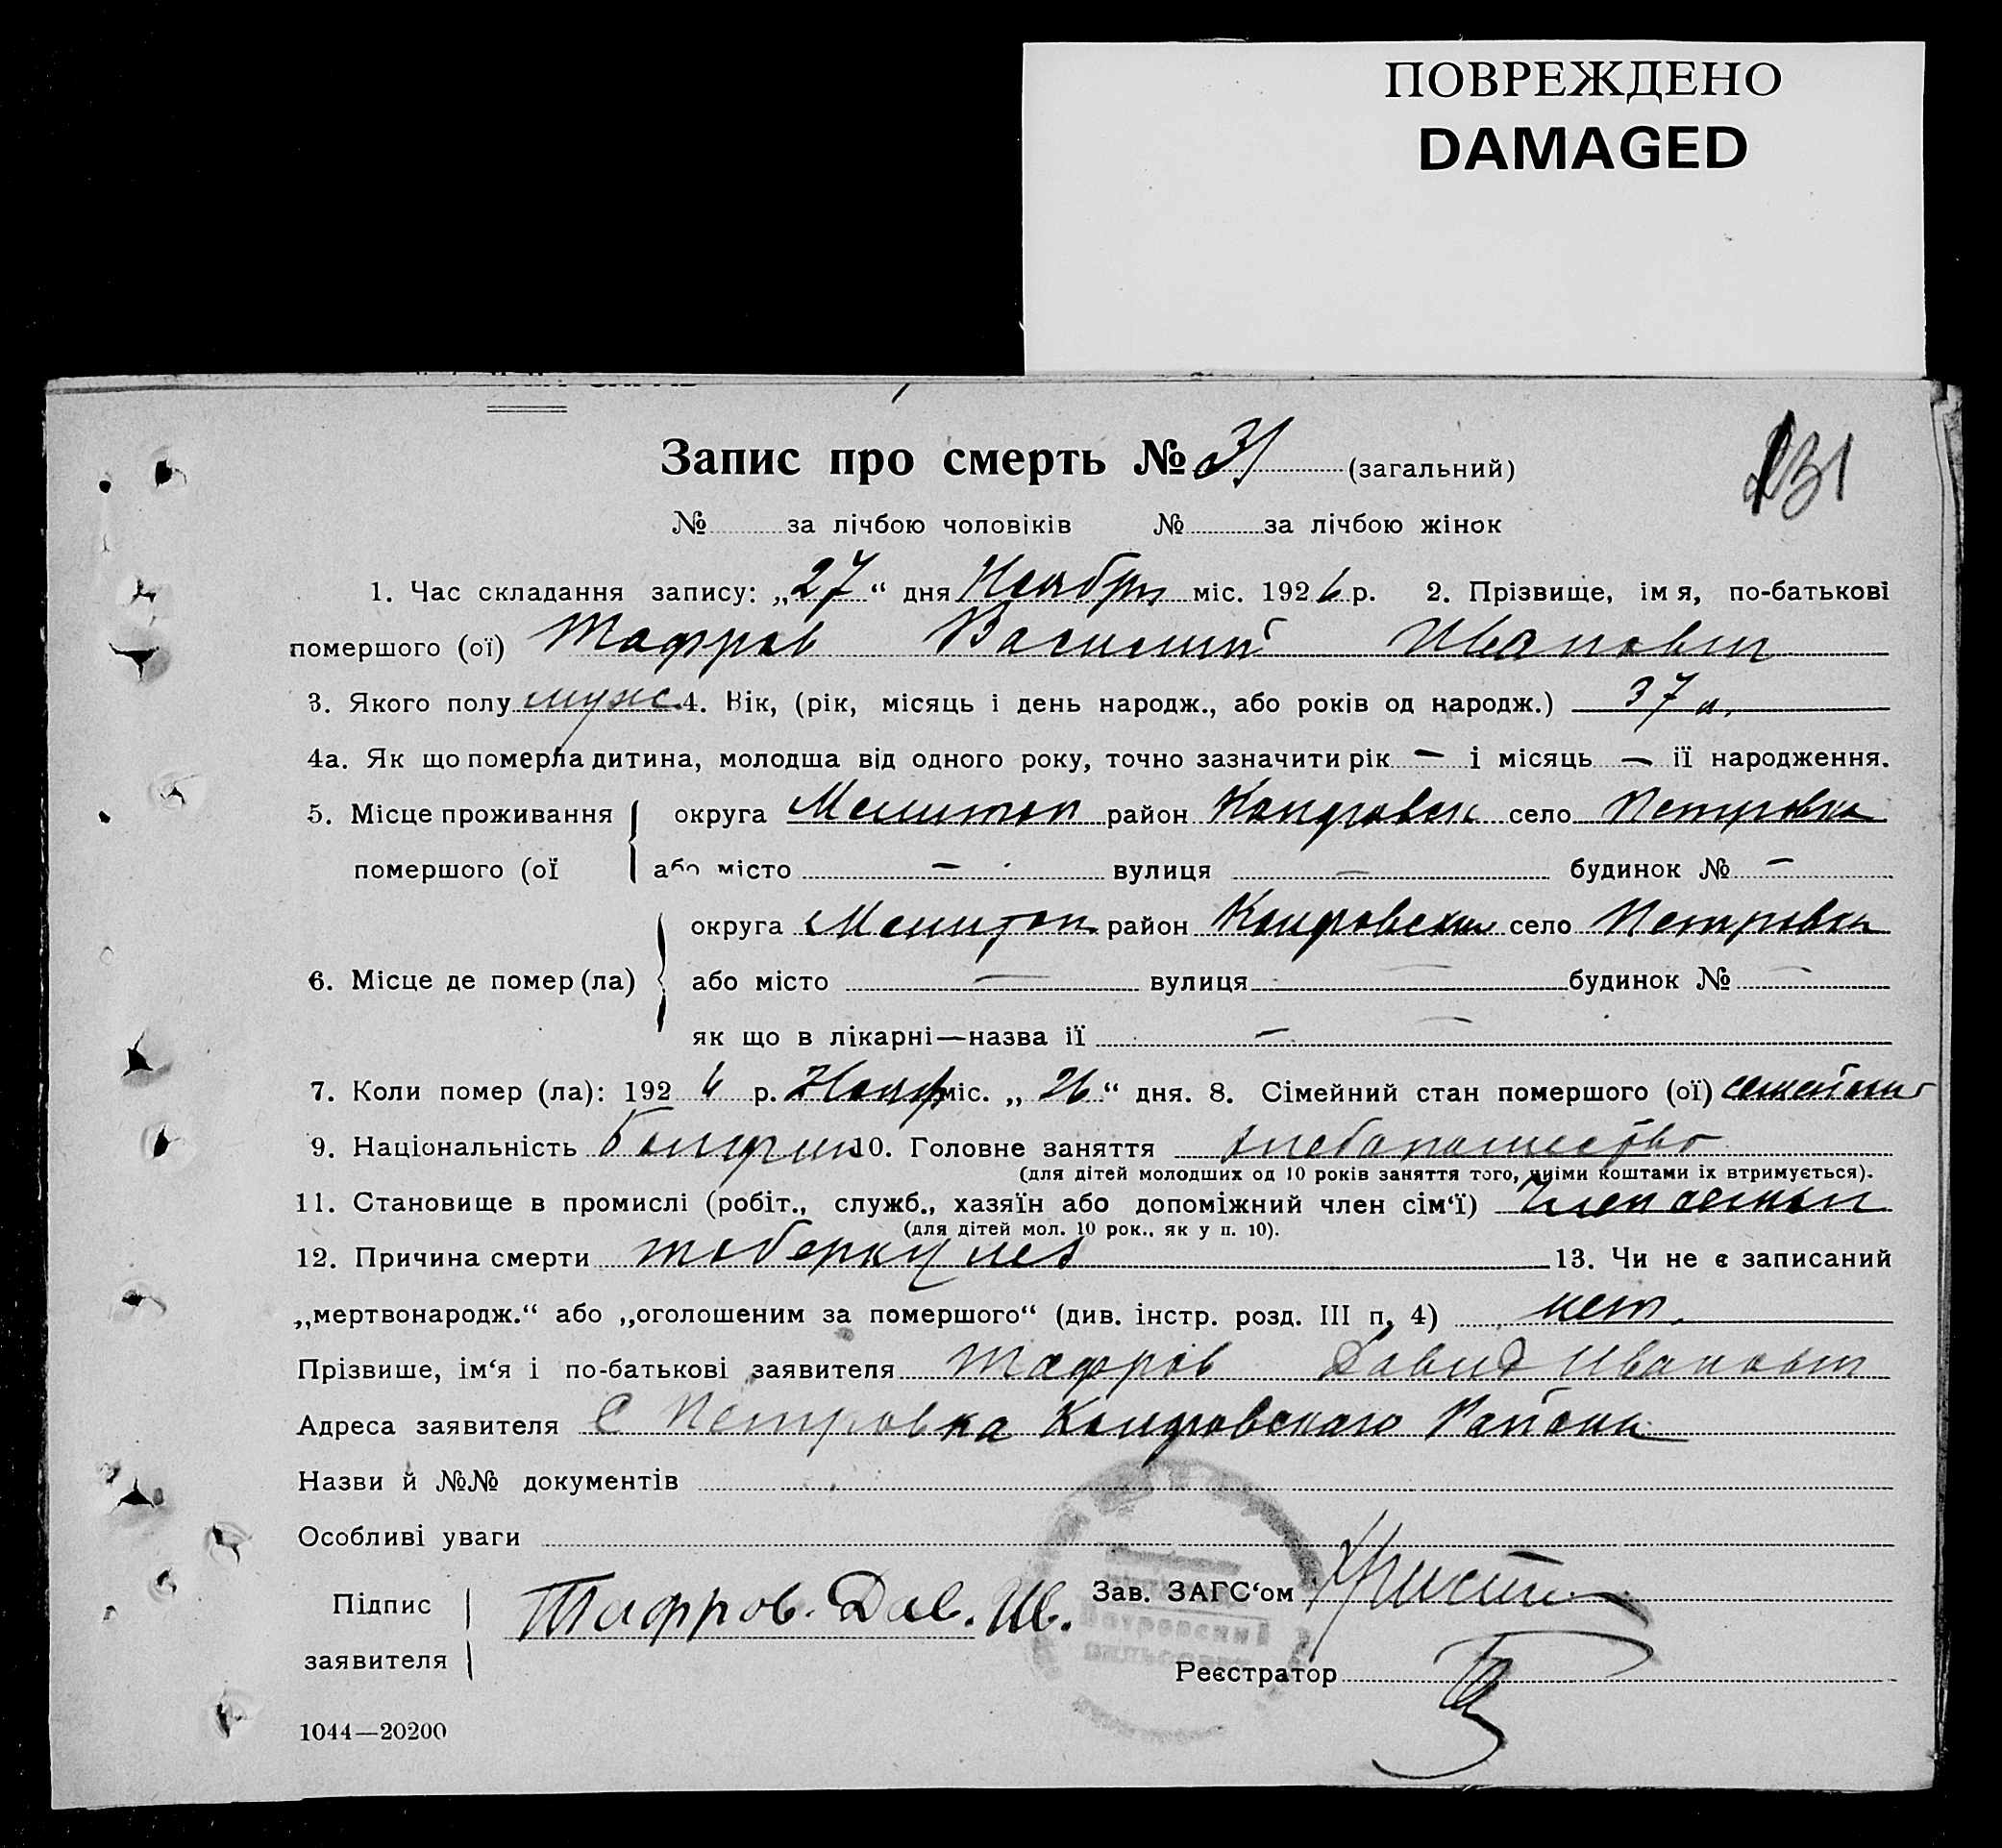 ПОВРЕЖДЕНО
DAMAGED
Запис про смерть № 31 (загальний)
131
№ за лічбою чоловіків № за лічбою жінок
1. Час складання запису: „27“ дня Ноября міс. 1926 р. 2. Прізвище, імя, по-батькові
помершого (ої) Тафров Василий Иванович
3. Якого полу муж. 4. Вік, (рік, місяць і день народж., або років од народж.) 37 л.
4а. Як що померла дитина, молодша від одного року, точно зазначити рік — і місяць — її народження.
5. Місце проживання округа Мелитоп район село Петровка
помершого (ої або місто — вулиця — будинок № —
округа Мелитоп. район село Петровка
6. Місце де помер (ла) або місто — вулиця — будинок № —
як що в лікарні—назва її —
7. Коли помер (ла): 1926 р. Нояб міс. „26“ дня. 8. Сімейний стан помершого (ої)
9. Національність Болгрин 10. Головне заняття хлебопашество
(для дітей молодших од 10 років заняття того, чиїми коштами їх втримується).
11. Становище в промислі (робіт., служб., хазяїн або допоміжний член сім‘ї) Член семьи
(для дітей мол. 10 рок., як у п. 10).
12. Причина смерти тоберкулез 13. Чи не є записаний
„мертвонародж.“ або „оголошеним за помершого“ (див. інстр. розд. III п. 4) нет.
Прізвише, ім‘я і по-батькові заявителя Тафров Давид Иванович
Адреса заявителя С Петровка Района
Назви й №№ документів
Особливі уваги
Підпис Тафров. Дав. Ив. Зав. ЗАГС‘ом
заявителя Реєстратор
1044—20200